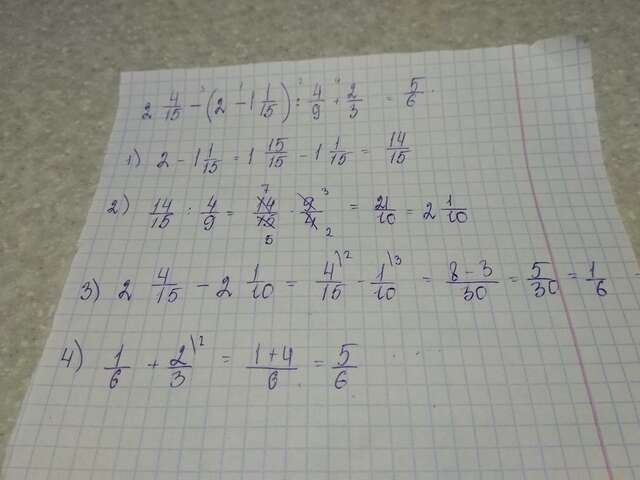 2 4/15 - (2 - 1 1/15) : 4/9 + 2/3 = 5/6.
1) 2 - 1 1/15 = 1 15/15 - 1 1/15 = 14/15
2) 14/15 : 4/9 = 14/15 · 9/4 = 21/10 = 2 1/10
3) 2 4/15 - 2 1/10 = 4\2/15 - 1\3/10 = 8-3/30 = 5/30 = 1/6
4) 1/6 + 2\2/3 = 1+4/6 = 5/6